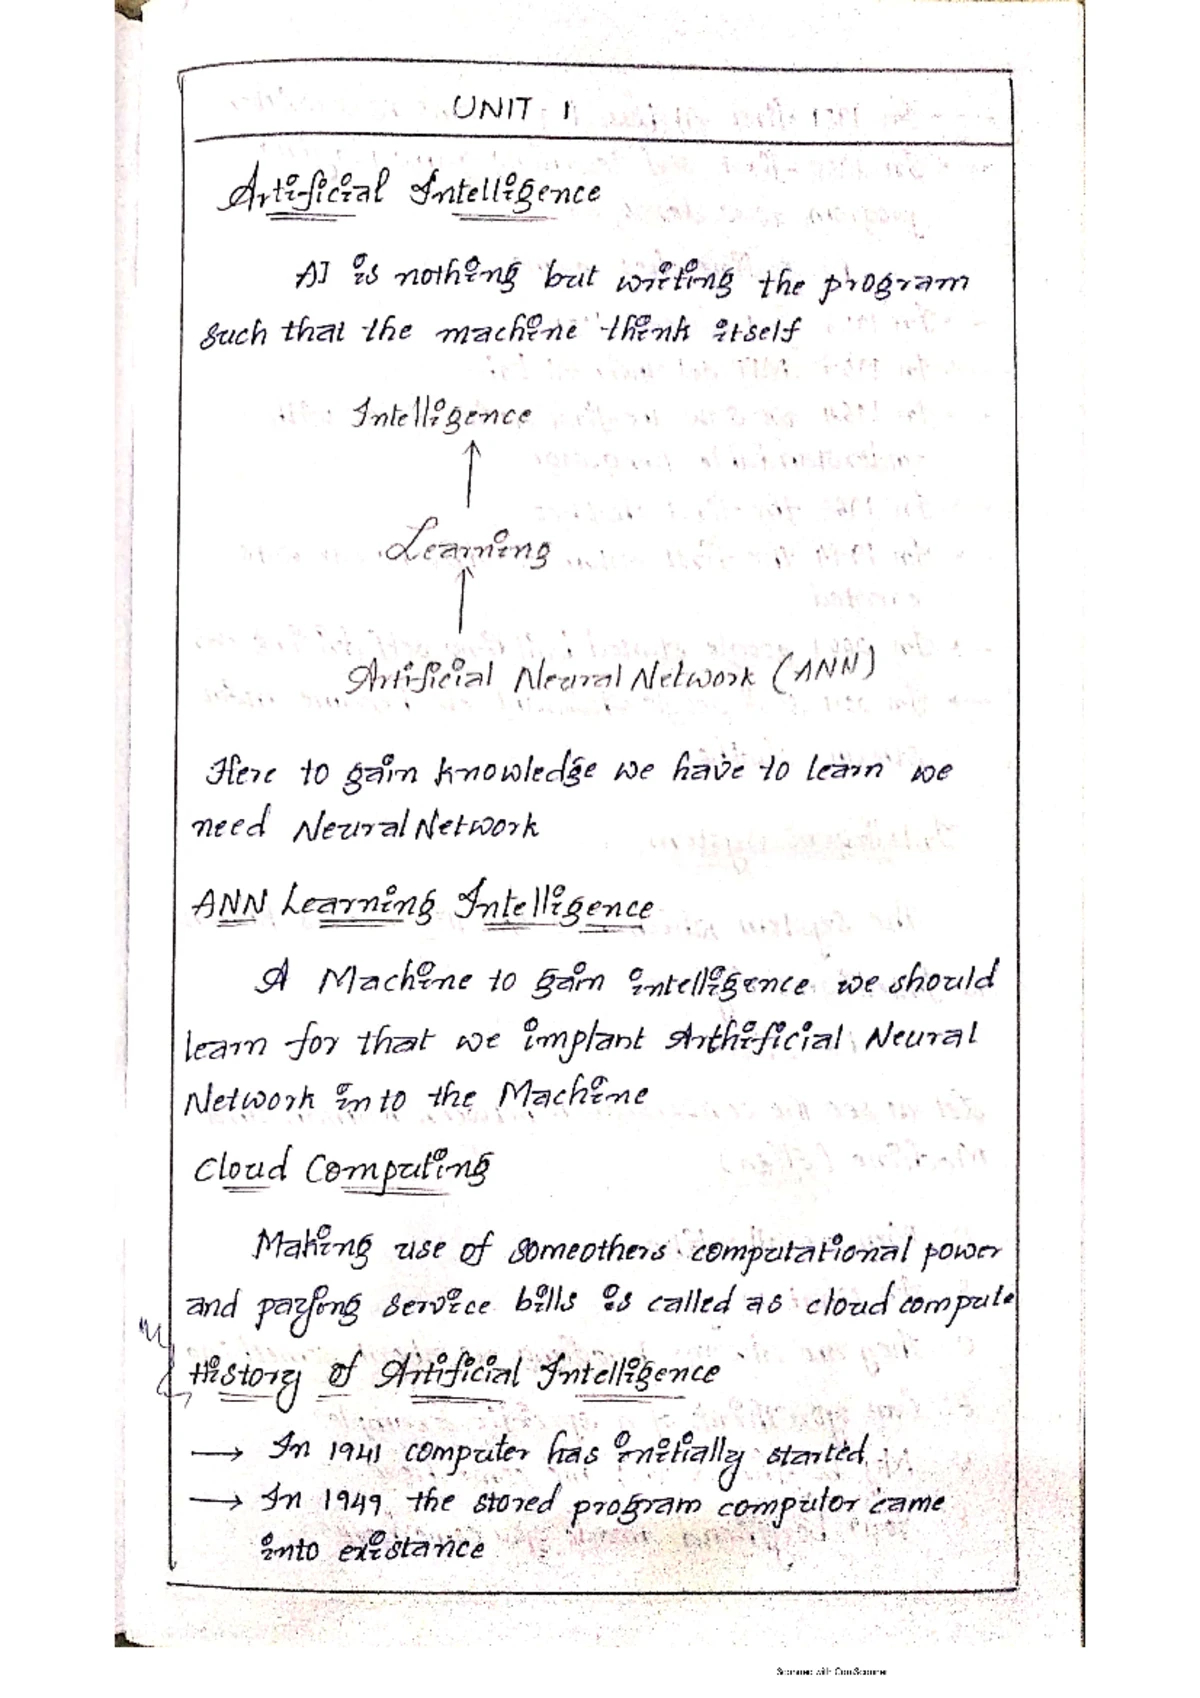 UNIT 1
Artificial Intelligence
AI is nothing but writing the program
such that the machine think itself
Intelligence
↑
Learning
↑
Artificial Neural Network (ANN)
Here to gain knowledge we have to learn we
need Neural Network
ANN Learning Intelligence
A Machine to gain intelligence we should
learn for that we implant Arthificial Neural
Network into the Machine
Cloud Computing
Making use of someothers computational power
and paying service bills is called as cloud compute
History of Artificial Intelligence
→ In 1941 computer has initially started
→ In 1949 the stored program computor came
into existance
Scanned with CamScanner